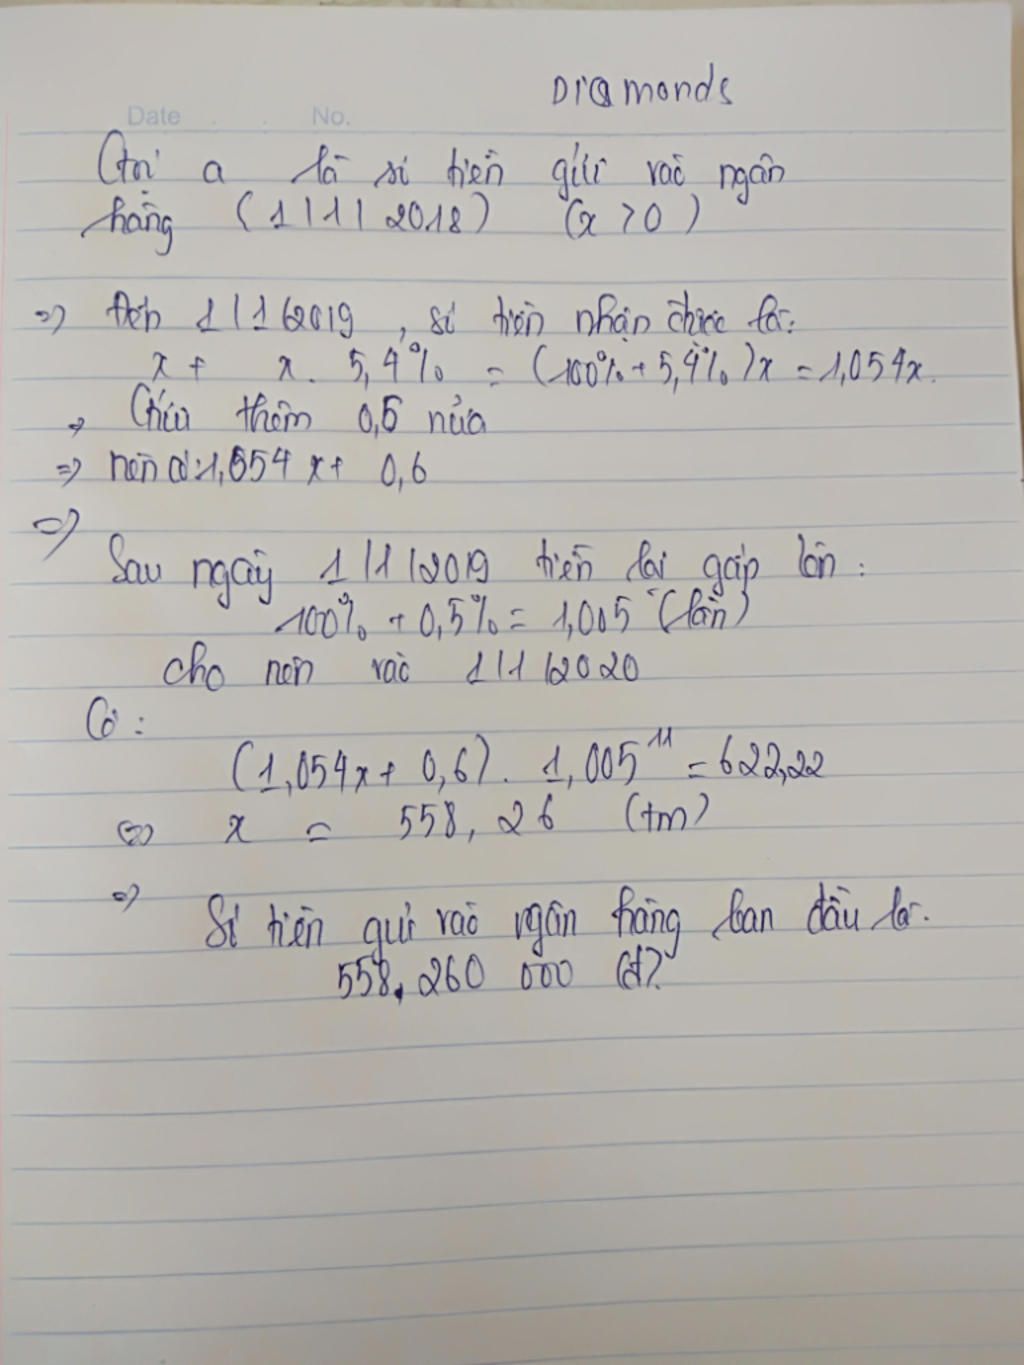 Diamonds
Date . . No.
Gọi a là số tiền gửi vào ngân
hàng (1/1/2018) (x > 0)
=> Đến 1/1/2019, số tiền nhận được là:
x + x. 5,4% = (100% + 5,4%)x = 1,054x.
=> Gửi thêm 0,6 nữa
=> nên có: 1,054x + 0,6
=>
Sau ngày 1/1/2019 tiền lãi gấp lên:
100% + 0,5% = 1,005 (lần)
cho nên vào 1/1/2020
Có:
(1,054x + 0,6). 1,005¹¹ = 622,22
<=> x = 558,26 (tm)
=>
Số tiền gửi vào ngân hàng ban đầu là.
558.260 000 (đ).